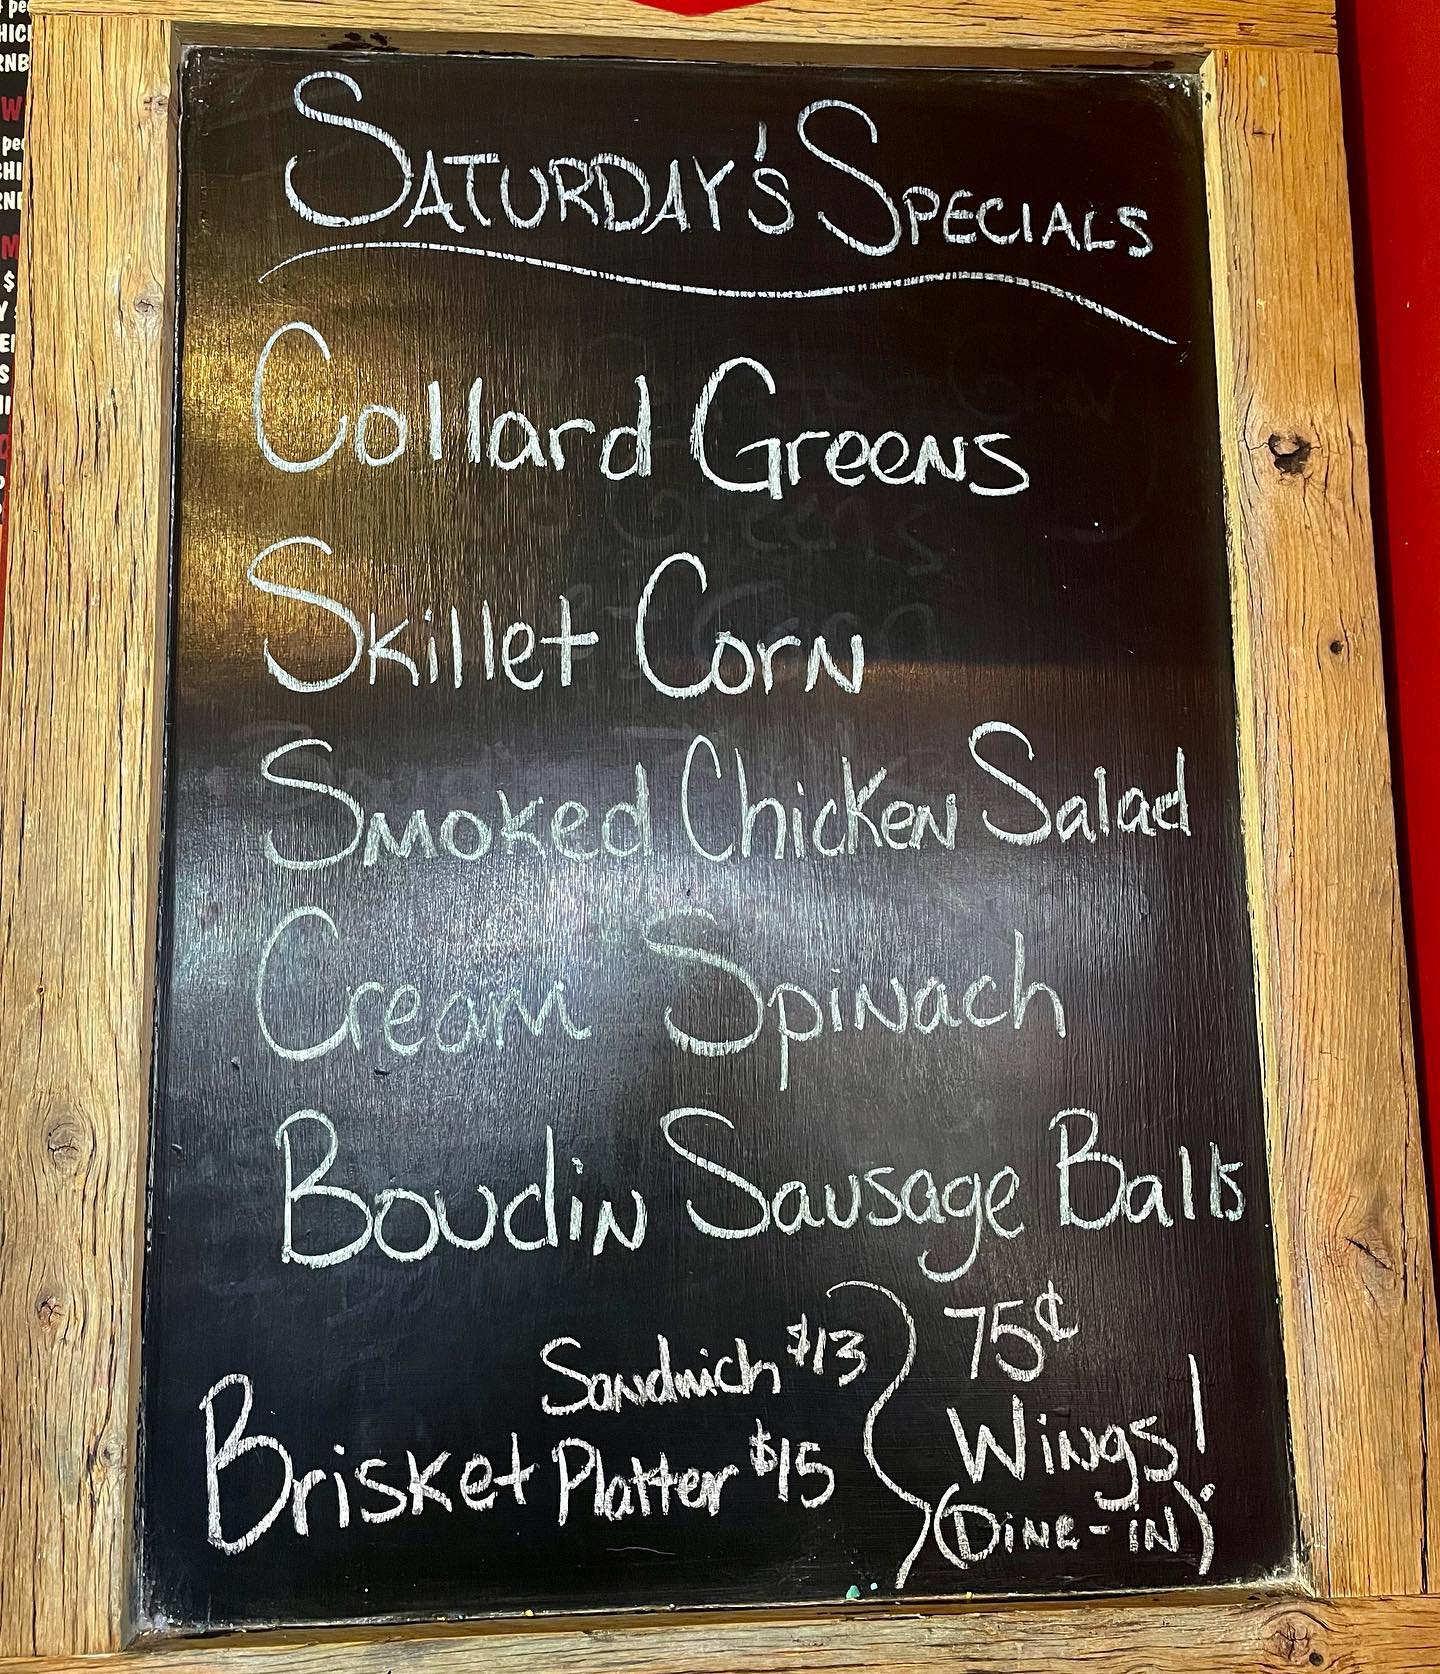 SATURDAY'S SPECIALS
Collard Greens
Skillet Corn
Smoked Chicken Salad
Cream Spinach
Boudin Sausage Balls
Sandwich $13
Brisket Platter $15
75¢
Wings!
(Dine-in)